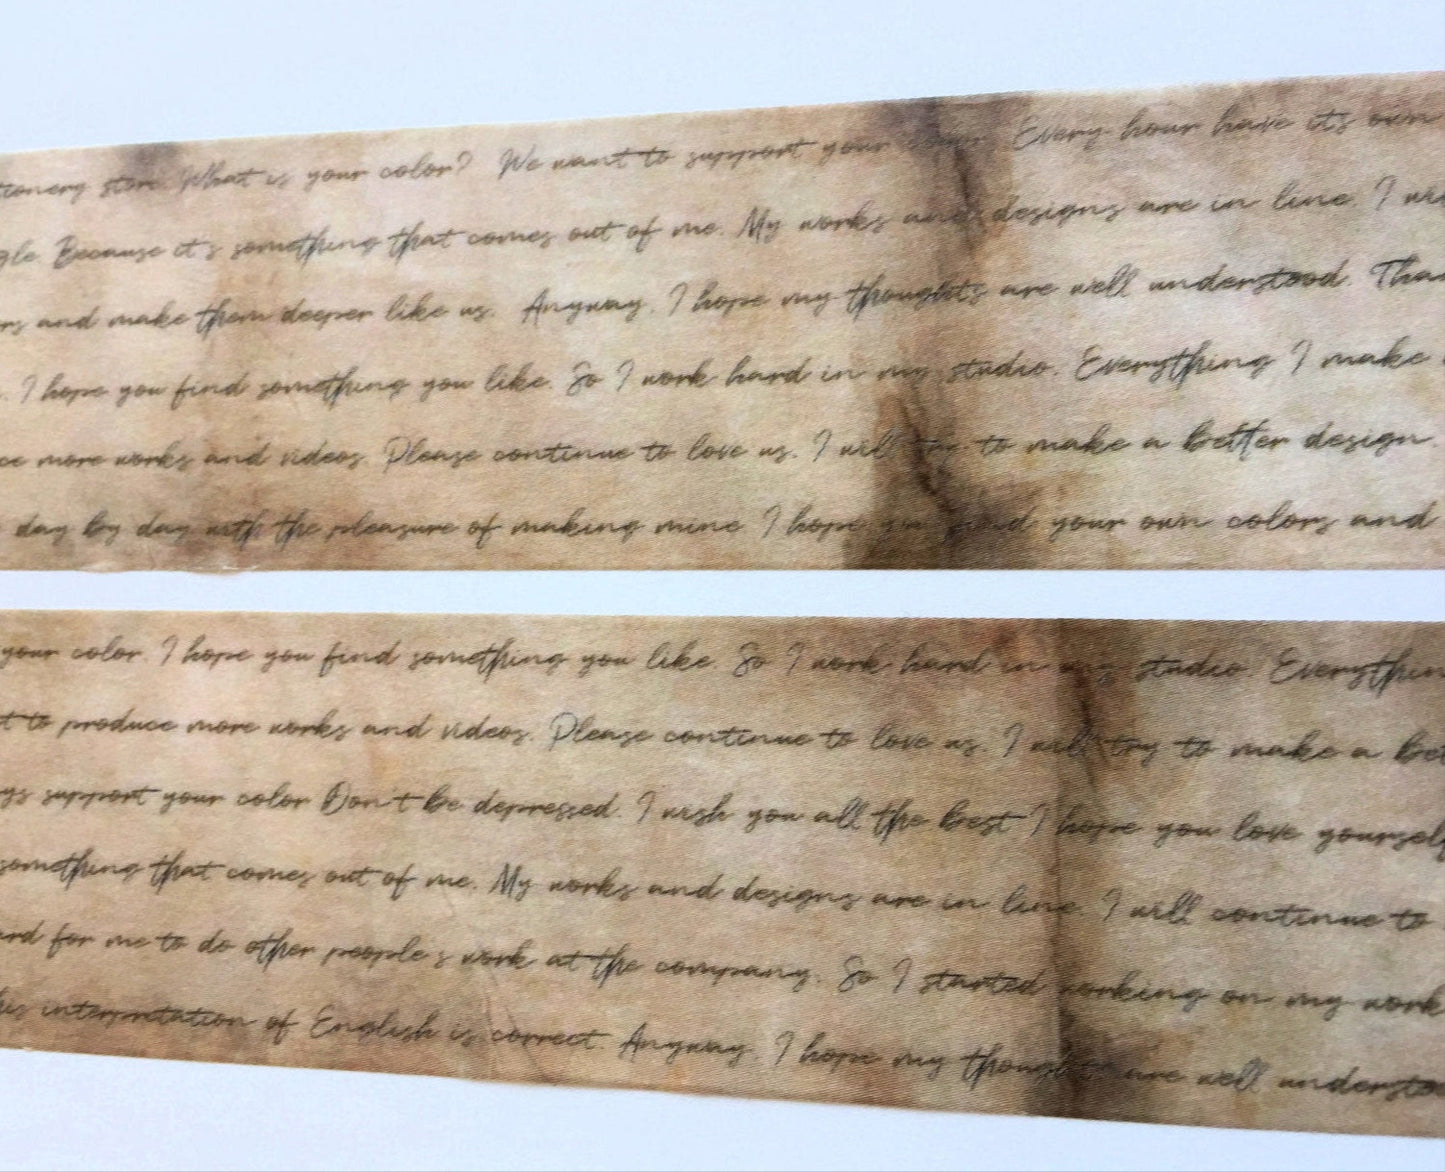 tionery store What is your color? We want to support your color Every hour have it's own
gle. Because it's something that comes out of me. My works and designs are in line. I wi
rs and make them deeper like us. Anyway, I hope my thoughts are well understood. Tha
. I hope you find something you like. So I work hard in my studio. Everything I make
ce more works and videos. Please continue to love us. I will try to make a better design.
day by day with the pleasure of making mine I hope you find your own colors and
your color. I hope you find something you like. So I work hard in my studio. Everythin
t to produce more works and videos. Please continue to love us. I will try to make a bet
ys support your color Don't be depressed. I wish you all the best I hope you love yourself
something that comes out of me. My works and designs are in line. I will continue to
ard for me to do other people's work at the company. So I started working on my work
his interpretation of English is correct. Anyway, I hope my thoughts are well understo